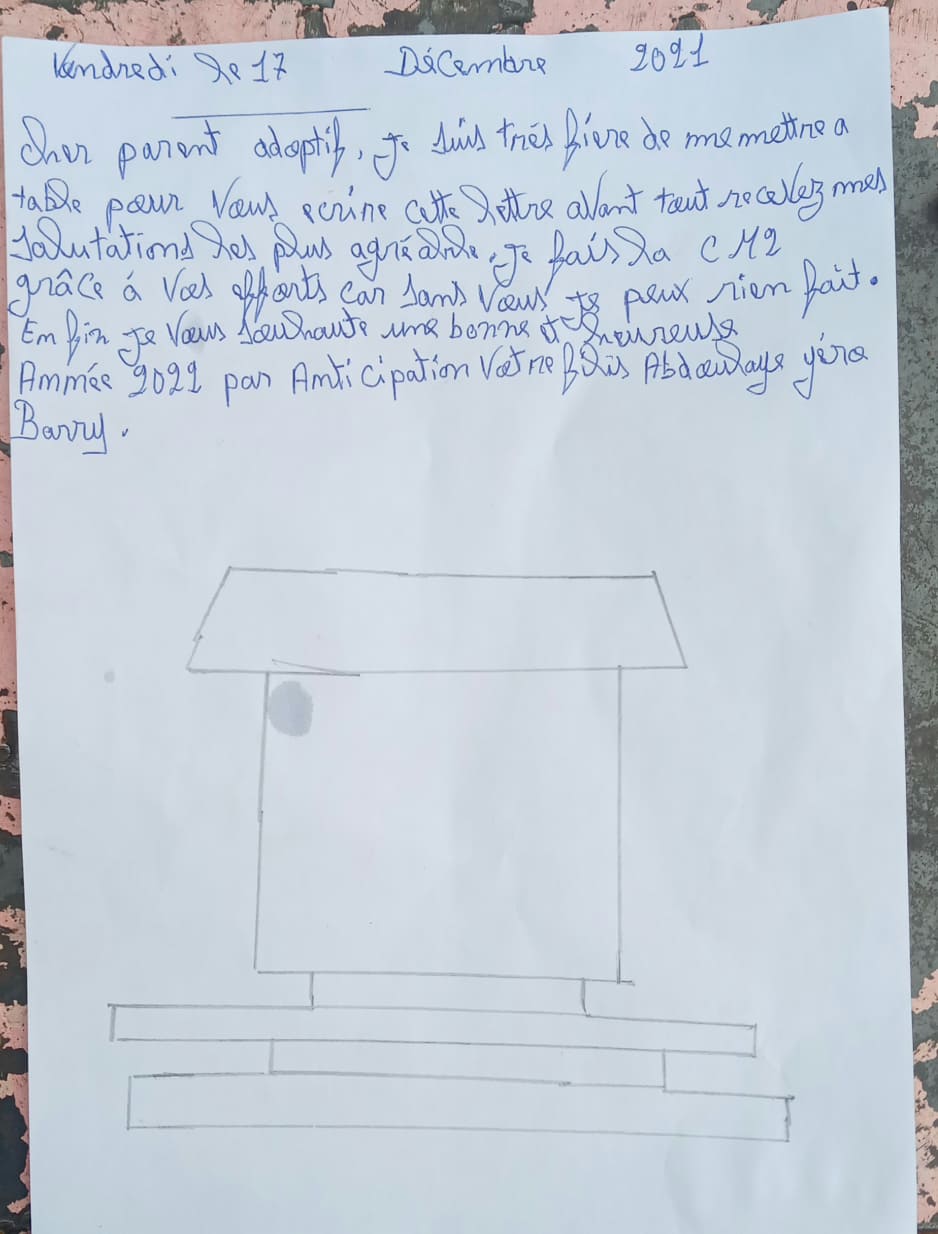 Vendredi le 17 Décembre 2021
Cher parent adoptif, Je suis très fière de me mettre a
table pour Vous ecrire cette lettre aVant tout receVez mes
salutations les plus agréable. Je fais la CM2
grâce á Vos efforts car sans Vous Je peux rien fait.
Enfin Je Vous souhaite une bonne et heureuse
Année 2022 par Anticipation Votre fils Abdoulaye yéro
Barry.